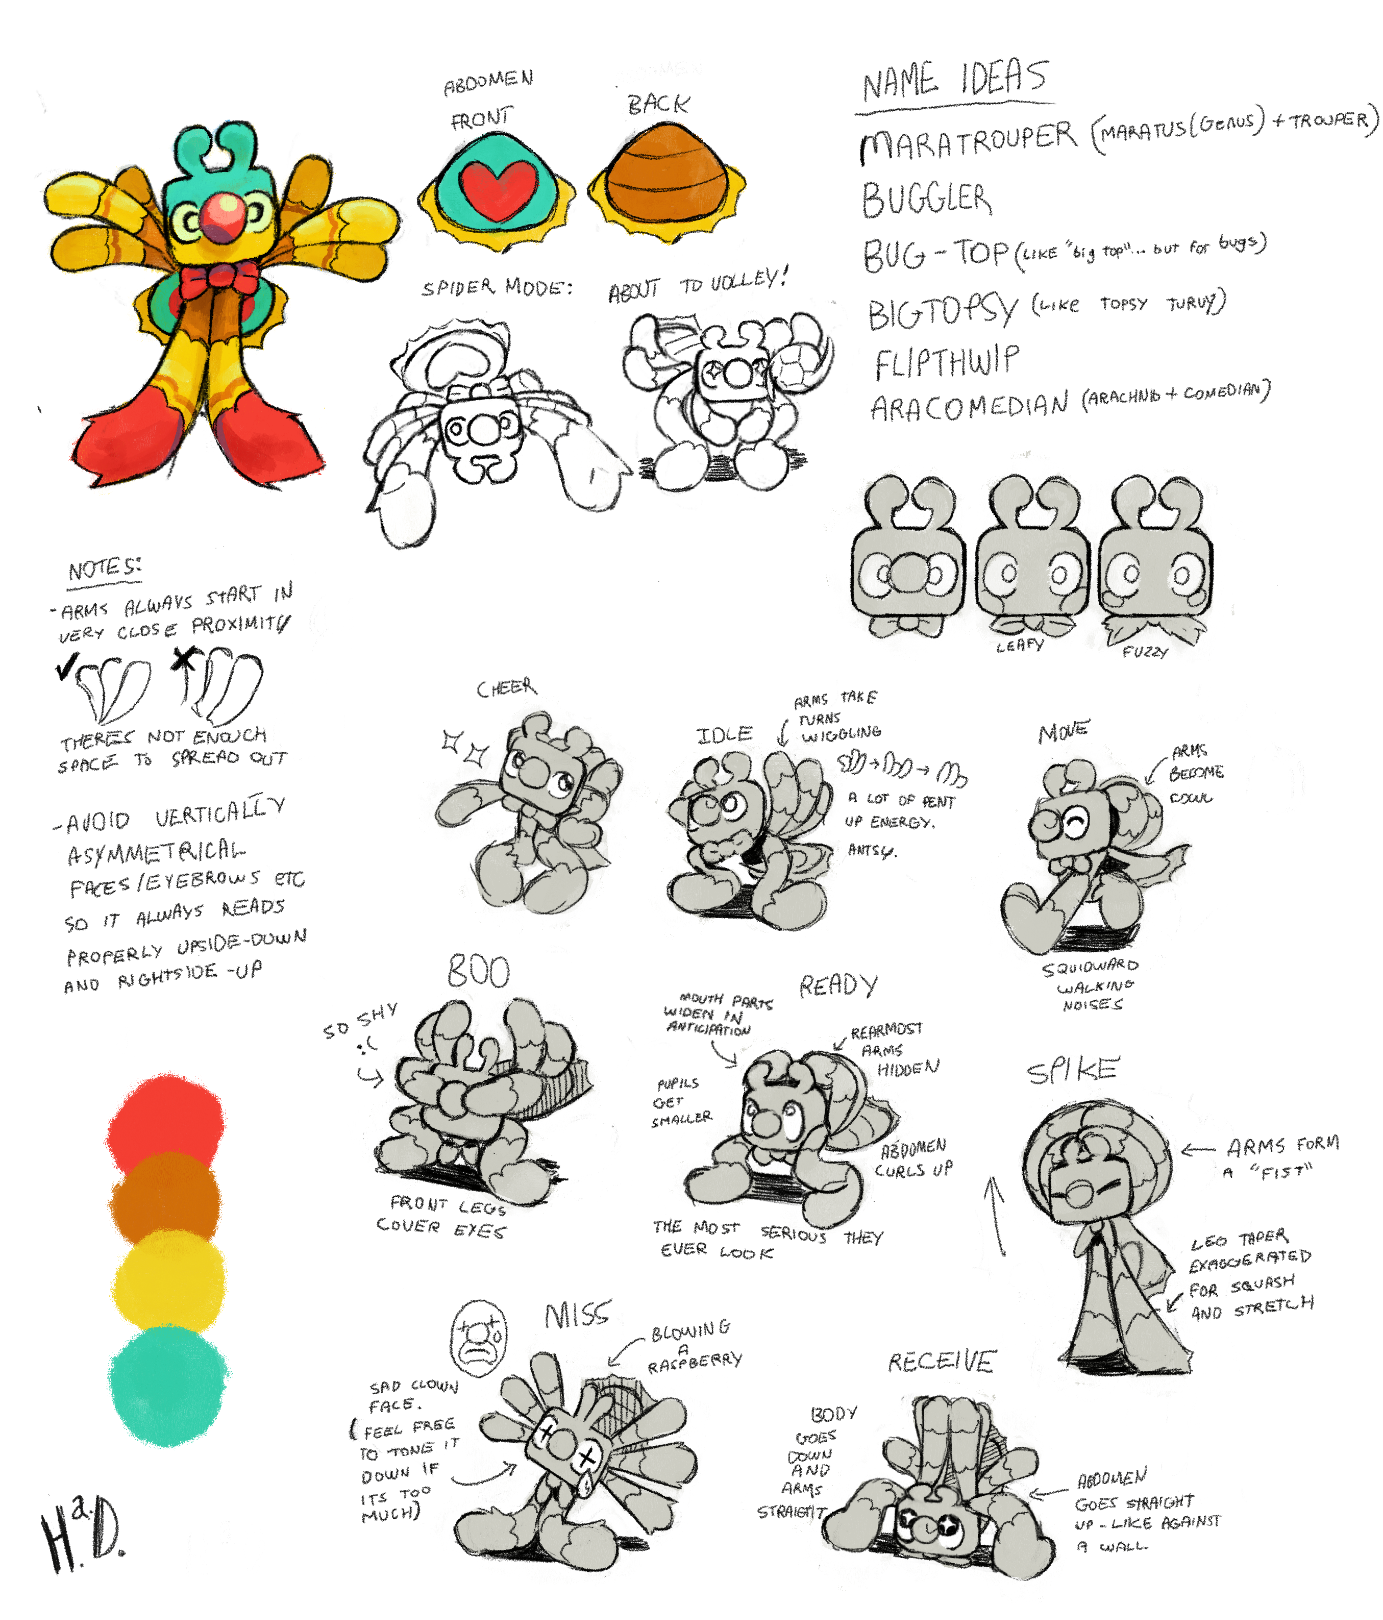 ABDOMEN
FRONT
BACK
SPIDER MODE:
ABOUT TO VOLLEY!
NAME IDEAS
MARATROUPER (MARATUS (GENUS) + TROUPER)
BUGGLER
BUG-TOP (LIKE "big top"... but for bugs)
BIGTOPSY (LIKE TOPSY TURVY)
FLIPTHWIP
ARACOMEDIAN (ARACHNID + COMEDIAN)
LEAFY
FUZZY
NOTES:
-ARMS ALWAYS START IN
VERY CLOSE PROXIMITY
THERES NOT ENOUGH
SPACE TO SPREAD OUT
-AVOID VERTICALLY
ASYMMETRICAL
FACES/EYEBROWS ETC
SO IT ALWAYS READS
PROPERLY UPSIDE-DOWN
AND RIGHTSIDE-UP
CHEER
IDLE
ARMS TAKE
TURNS
WIGGLING
A LOT OF PENT
UP ENERGY.
ANTSY.
MOVE
ARMS
BECOME
COWL
SQUIDWARD
WALKING
NOISES
BOO
SO SHY
:(
FRONT LEGS
COVER EYES
READY
MOUTH PARTS
WIDEN IN
ANTICIPATION
REARMOST
ARMS
HIDDEN
PUPILS
GET
SMALLER
ABDOMEN
CURLS UP
THE MOST SERIOUS THEY
EVER LOOK
SPIKE
ARMS FORM
A "FIST"
LEG TAPER
EXAGGERATED
FOR SQUASH
AND STRETCH
MISS
BLOWING
A
RASPBERRY
SAD CLOWN
FACE.
(FEEL FREE
TO TONE IT
DOWN IF
ITS TOO
MUCH)
RECEIVE
BODY
GOES
DOWN
AND
ARMS
STRAIGHT
ABDOMEN
GOES STRAIGHT
UP - LIKE AGAINST
A WALL
H.a.D.